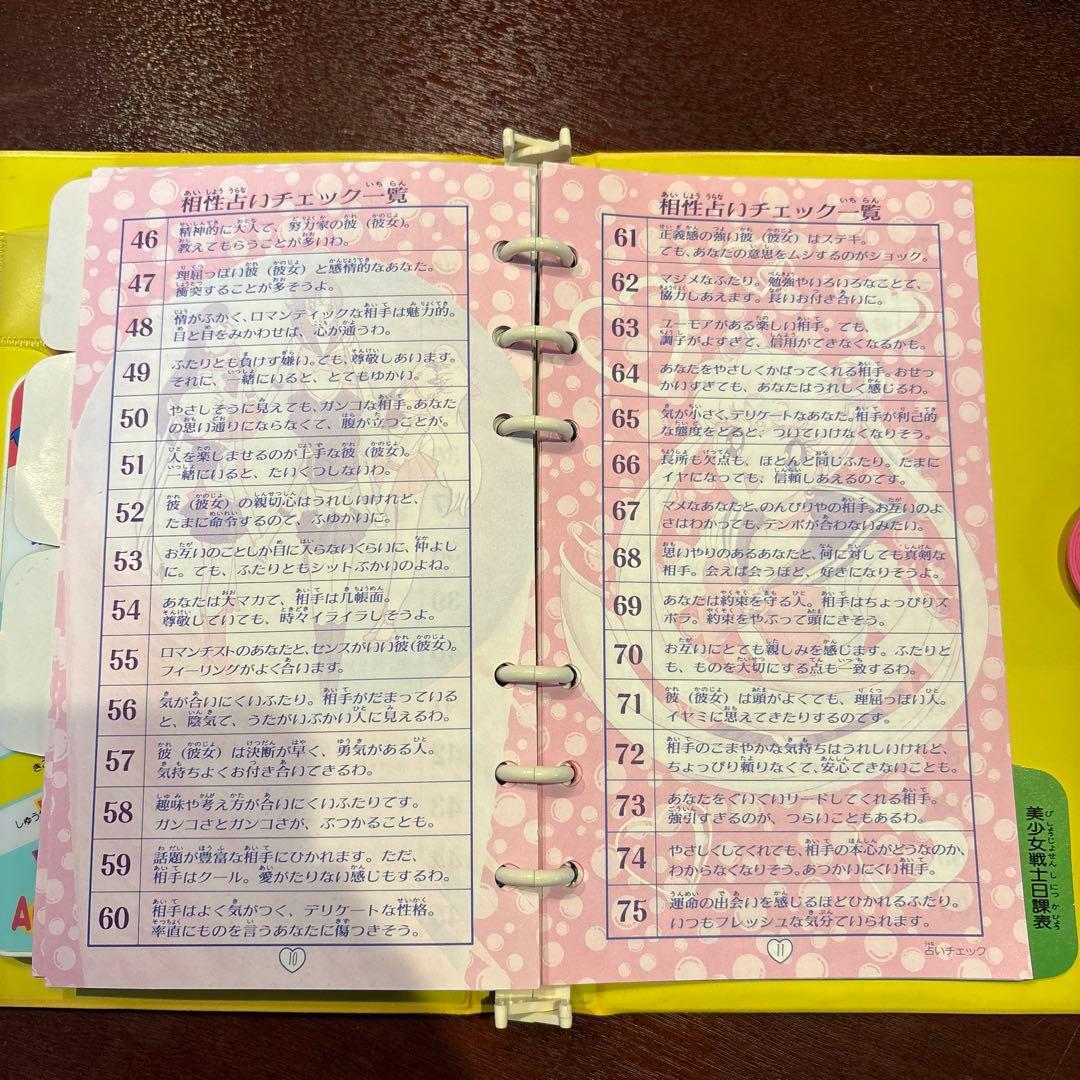 相性占いチェック一覧
46 精神的に大人で、努力家の彼(彼女)。
教えてもらうことが多いわ。
47 理屈っぽい彼(彼女)と感情的なあなた。
衝突することが多そうよ。
48 情がふかく、ロマンティックな相手は魅力的。
目と目をみかわせば、心が通うわ。
49 ふたりとも負けず嫌い。でも、尊敬しあいます。
それに、一緒にいると、とてもゆかい。
50 やさしそうに見えても、ガンコな相手。あなた
の思い通りにならなくて、腹が立つことか。
51 人を楽しませるのが上手な彼(彼女)。
一緒にいると、たいくつしないわ。
52 彼(彼女)の親切心はうれしいけれど、
たまに命令するので、ふゆかいに。
53 お互いのことしか目に入らないくらいに、仲よし
に。でも、ふたりともシットぶかいのよね。
54 あなたは大マカで、相手は几帳面。
尊敬していても、時々イライラしそうよ。
55 ロマンチストのあなたと、センスがいい彼(彼女)。
フィーリングがよく合います。
56 気が合いにくいふたり。相手がだまっている
と、陰気で、うたがいぶかい人に見えるわ。
57 彼(彼女)は決断が早く、勇気がある人。
気持ちよくお付き合いできるわ。
58 趣味や考え方が合いにくいふたりです。
ガンコさとガンコさが、ぶつかることも。
59 話題が豊富な相手にひかれます。ただ、
相手はクール。愛がたりない感じもするわ。
60 相手はよく気がつく、デリケートな性格。
率直にものを言うあなたに傷つきそう。
10
相性占いチェック一覧
61 正義感の強い彼(彼女)はステキ。
でも、あなたの意思をムシするのがショック。
62 マジメなふたり。勉強やいろいろなことで、
協力しあえます。長いお付き合いに。
63 ユーモアがある楽しい相手。でも、
調子がよすぎて、信用ができなくなるかも。
64 あなたをやさしくかばってくれる相手。おせっ
かいすぎても、あなたはうれしく感じるわ。
65 気が小さく、デリケートなあなた。相手が利己的
な態度をとると、ついていけなくなりそう。
66 長所も欠点も、ほとんど同じふたり。たまに
イヤになっても、信頼しあえるのです。
67 マメなあなたと、のんびりやの相手。お互いのよ
さはわかっても、テンポが合わないみたい。
68 思いやりのあるあなたと、何に対しても真剣な
相手。会えば会うほど、好きになりそうよ。
69 あなたは約束を守る人。相手はちょっぴりズ
ボラ。約束をやぶって頭にきそう。
70 お互いにとても親しみを感じます。ふたりと
も、ものを大切にする点も一致するわ。
71 彼(彼女)は頭がよくても、理屈っぽい人。
イヤミに思えてきたりするのです。
72 相手のこまやかな気持ちはうれしいけれど、
ちょっぴり頼りなくて、安心できないことも。
73 あなたをぐいぐいリードしてくれる相手。
強引すぎるのが、つらいこともあるわ。
74 やさしくしてくれても、相手の本心がどうなのか、
わからなくなりそう。あつかいにくい相手。
75 運命の出会いを感じるほどひかれるふたり。
いつもフレッシュな気分でいられます。
11
占いチェック
美少女戦士日課表